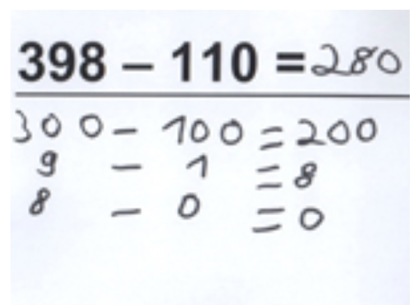 398 – 110 = 280
300 - 100 = 200
9 - 1 = 8
8 - 0 = 0